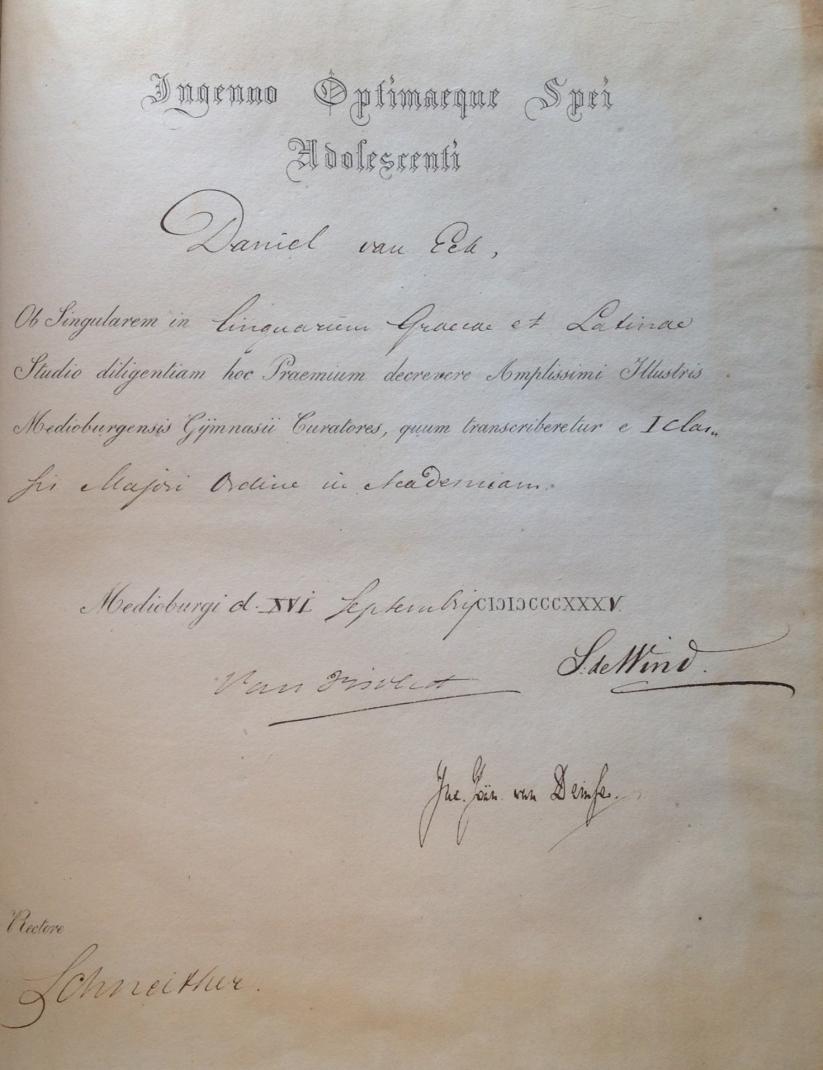 Ingenuo Optimaeque Spei
Adolescenti
Daniel van Eck,
Ob Singularem in linguarum Graecae et Latinae
Studio diligentiam hoc Praemium decrevere Amplissimi Illustris
Medioburgensis Gymnasii Curatores, quum transcriberetur e I clas„
sis Majori Ordine in Academiam.
Medioburgi d. XVI Septembris CIƆIƆCCCXXXV
S. de Wind.
Van
van
Rectore
Schneither.